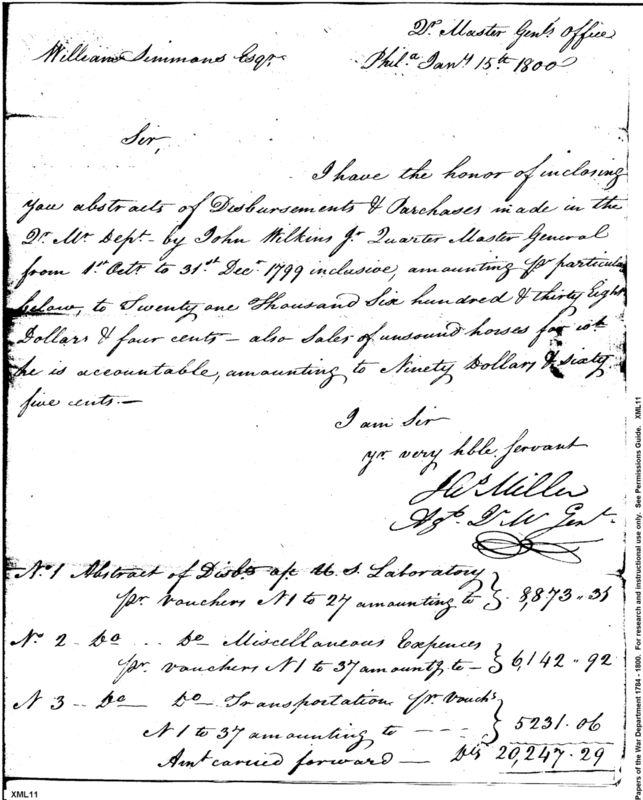 Qr. Master Genl's Office
William Simmons Esqr.
Phil.a Jany 15th 1800
Sir,
I have the honor of inclosing
you abstracts of Disbursements & Purchases made in the
Qr. Mr. Dept. by John Wilkins Jr. Quarter Master General
from 1st Octr. to 31st Decr. 1799 inclusive, amounting pr particular
below, to Twenty one Thousand Six hundred & thirty Eight
Dollars & four cents – also Sales of unsound horses for wh.
he is accountable, amounting to Ninety Dollars & sixty
five cents. –
I am Sir
yr very hble. Servant
Jas Miller
Agt. Q M Genl.
No. 1 Abstract of Disbts. a/c U. S. Laboratory
pr. vouchers N 1 to 27 amounting to } 8,873 .. 31
No. 2 – Do .. Do – Miscellaneous Expences
pr. vouchers N 1 to 37 amountg. to – } 6,142 .. 92
N 3 – Do – Do – Transportation pr. Vouchs.
N 1 to 37 amounting to – – – } 5231 . 06
Amt carried forward — Drs 20,247 . 29
XML11
Papers of the War Department 1784 - 1800. For research and instructional use only. See Permissions Guide. XML11